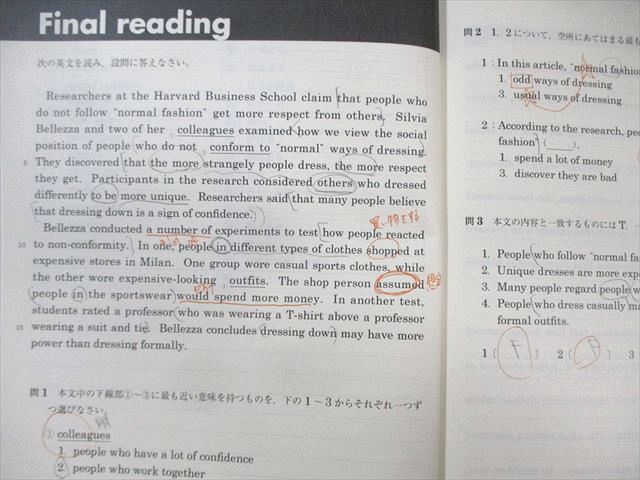 Final reading
次の英文を読み，設問に答えなさい。
Researchers at the Harvard Business School claim that people who
do not follow "normal fashion" get more respect from others. Silvia
Bellezza and two of her colleagues examined how we view the social
position of people who do not conform to "normal" ways of dressing.
5 They discovered that the more strangely people dress, the more respect
they get. Participants in the research considered others who dressed
differently to be more unique. Researchers said that many people believe
that dressing down is a sign of confidence.
買い物をする
Bellezza conducted a number of experiments to test how people reacted
10 to non-conformity. In one, people in different types of clothes shopped at
expensive stores in Milan. One group wore casual sports clothes, while
the other wore expensive-looking outfits. The shop person assumed
people in the sportswear would spend more money. In another test,
students rated a professor who was wearing a T-shirt above a professor
15 wearing a suit and tie. Bellezza concludes dressing down may have more
power than dressing formally.
問1 本文中の下線部①～③に最も近い意味を持つものを，下の1～3からそれぞれ一つず
つ選びなさい。
① colleagues
1. people who have a lot of confidence
2. people who work together
問2 1，2について，空所にあてはまる最も
1 : In this article, "normal fashion
1. odd ways of dressing
3. usual ways of dressing
2 : According to the research, pe
fashion" (
).
1. spend a lot of money
3. discover they are bad
問3 本文の内容と一致するものにはT,
1. People who follow "normal fa
2. Unique dresses are more exp
3. Many people regard people w
4. People who dress casually ma
formal outfits.
1 [ F ] 2 [ F ] 3